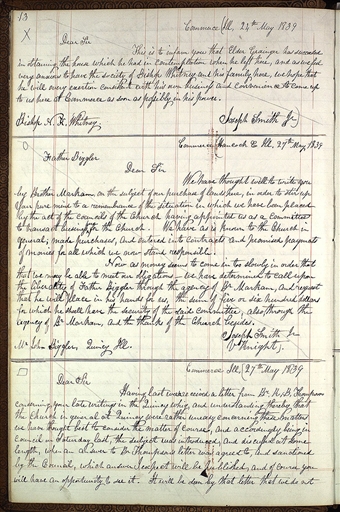 13
X
Commerce Ill, 24th May 1839
Dear Sir
This is to inform you that Elder Grainger has succeeded
in obtaining the house which he had in contemplation when he left here, and as we feel
very anxious to have the society of Bishop Whitney and his family here, we hope that
he will every exertion consistent with his own business and convenience to come up
to us here at Commerce as soon as possibly in his power.
Joseph Smith Jr
Bishop N. K. Whitney
Commerce, Hancock Co Ill, 27th May, 1839
Father Bigler
Dear Sir
We have thought well to write you
by Brother Markham on the subject of our purchase of lands here, in order to stir up
your pure mind to a remembrance of the situation in which we have been placed
by the act of the councils of the Church having appointed us as a Committee
to transact business for the Church. We have as is known to the Church in
general, made purchases, and entered into contracts and promised payments
of monies for all which we now stand responsible.
Now as money seems to come in too slowly in order that
that we may be able to meet our obligations we have determined to call upon
the liberality of Father Bigler through the agency of Br Markham, and request
that he will place in his hands for us, the sum of five or six hundred dollars
for which he shall have the security of the said committee, also, through the
agency of Br Markham, and the thanks of the Church besides.
Joseph Smith Jr
V Knight.
Mr John Bigler, Quincy Ill.
Commerce Ill, 27th May 1839
Dear Sir
Having last week received a letter from Br R. B. Thompson
concerning your late writing in the Quincy whig, and understanding thereby that
the Church in general at Quincy were rather uneasy concerning these matters
we have thought best to consider the matter of course, and accordingly being in
council on Saturday last, the subject was introduced, and discussed at some
length, when an answer to Br Thompsons letter was agreed to, and sanctioned
by the Council, which answer I expect will be published, and of course you
will have an opportunity to see it. It will be seen by that letter that we do not